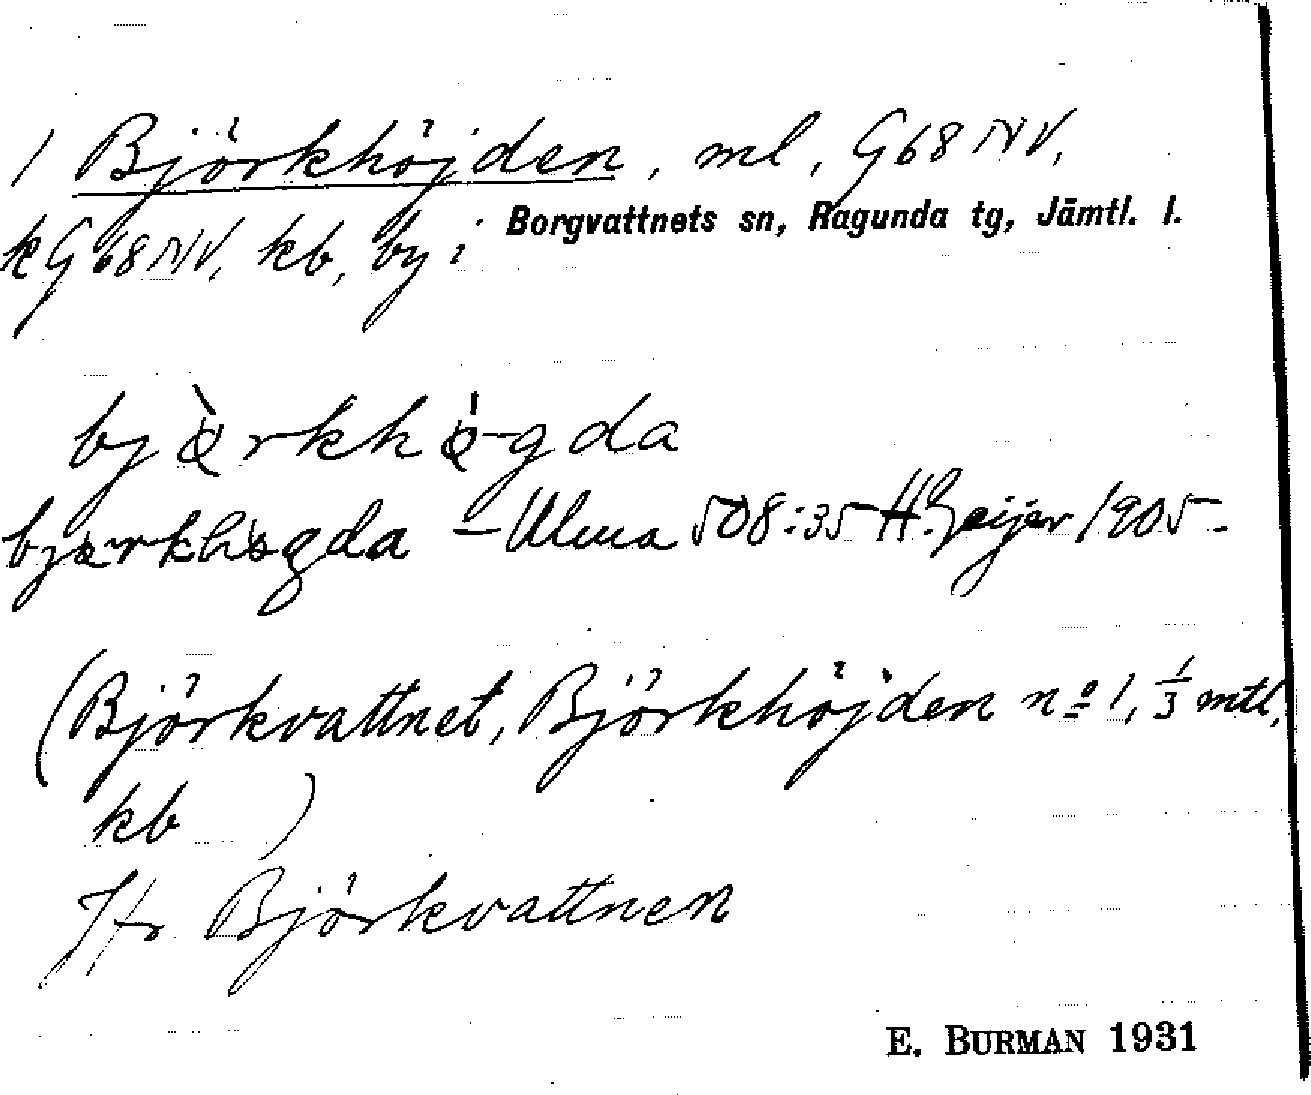 1 Björkhöjden, ml, G68NV,
kG68NV, kb, by i Borgvattnets sn, Ragunda tg, Jämtl. l.
bjö̀rkhö́gda
bjørkhøgda – Ulma 508:35 H. Geijer 1905 –
(Björkvattnet, Björkhöjden nº 1, 1/3 mtl,
kb )
Jfr Björkvattnen
E. BURMAN 1931